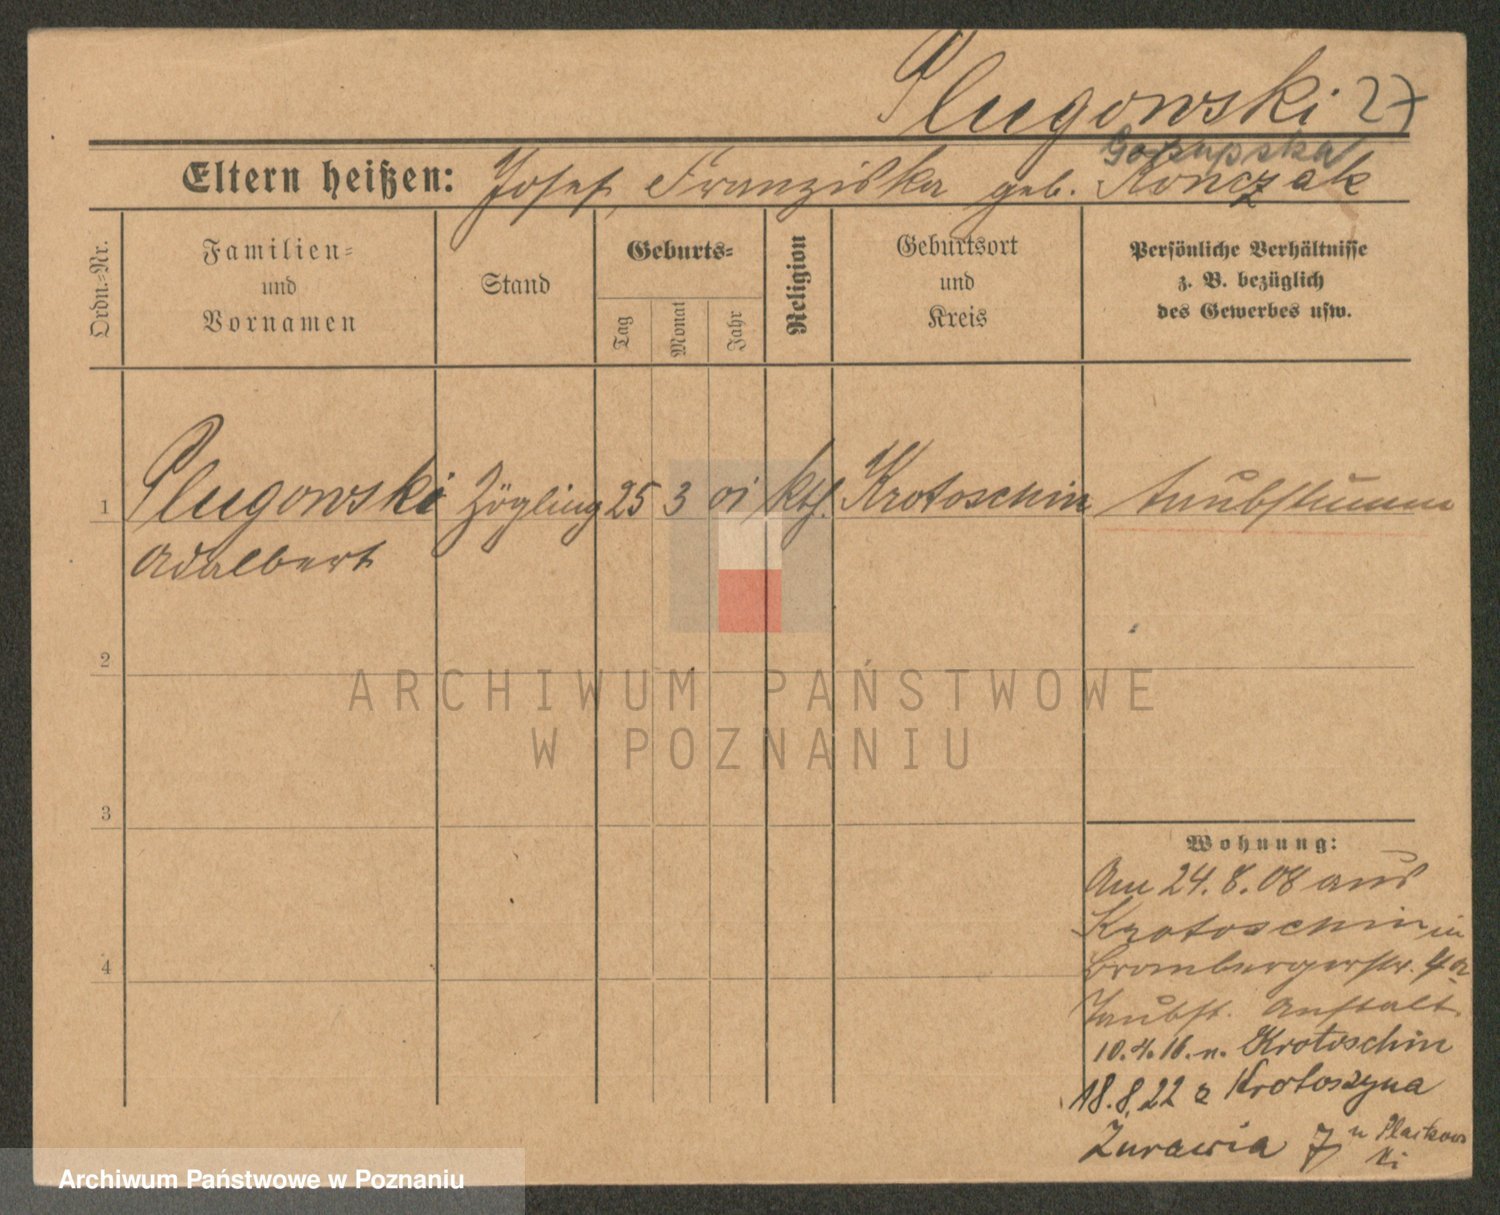 Plugowski 27
Gorzupska
Eltern heißen: Josef, Franziska geb. Konczak
Ordn.-Nr.
Familien- und Vornamen
Stand
Geburts-
Tag
Monat
Jahr
Religion
Geburtsort und Kreis
Persönliche Verhältnisse
z. B. bezüglich
des Gewerbes usw.
1 Plugowski Zögling 25 3 01 kth. Krotoschin taubstumm
Adalbert
2
3
4
Wohnung:
Am 24.8.08 aus
Krotoschin in
Brombergerstr. 4a
Taubst. Anstalt
10.4.16. n. Krotoschin
18.8.22 z Krotoszyna
Żurawia 7 u
ARCHIWUM PAŃSTWOWE
W POZNANIU
Archiwum Państwowe w Poznaniu